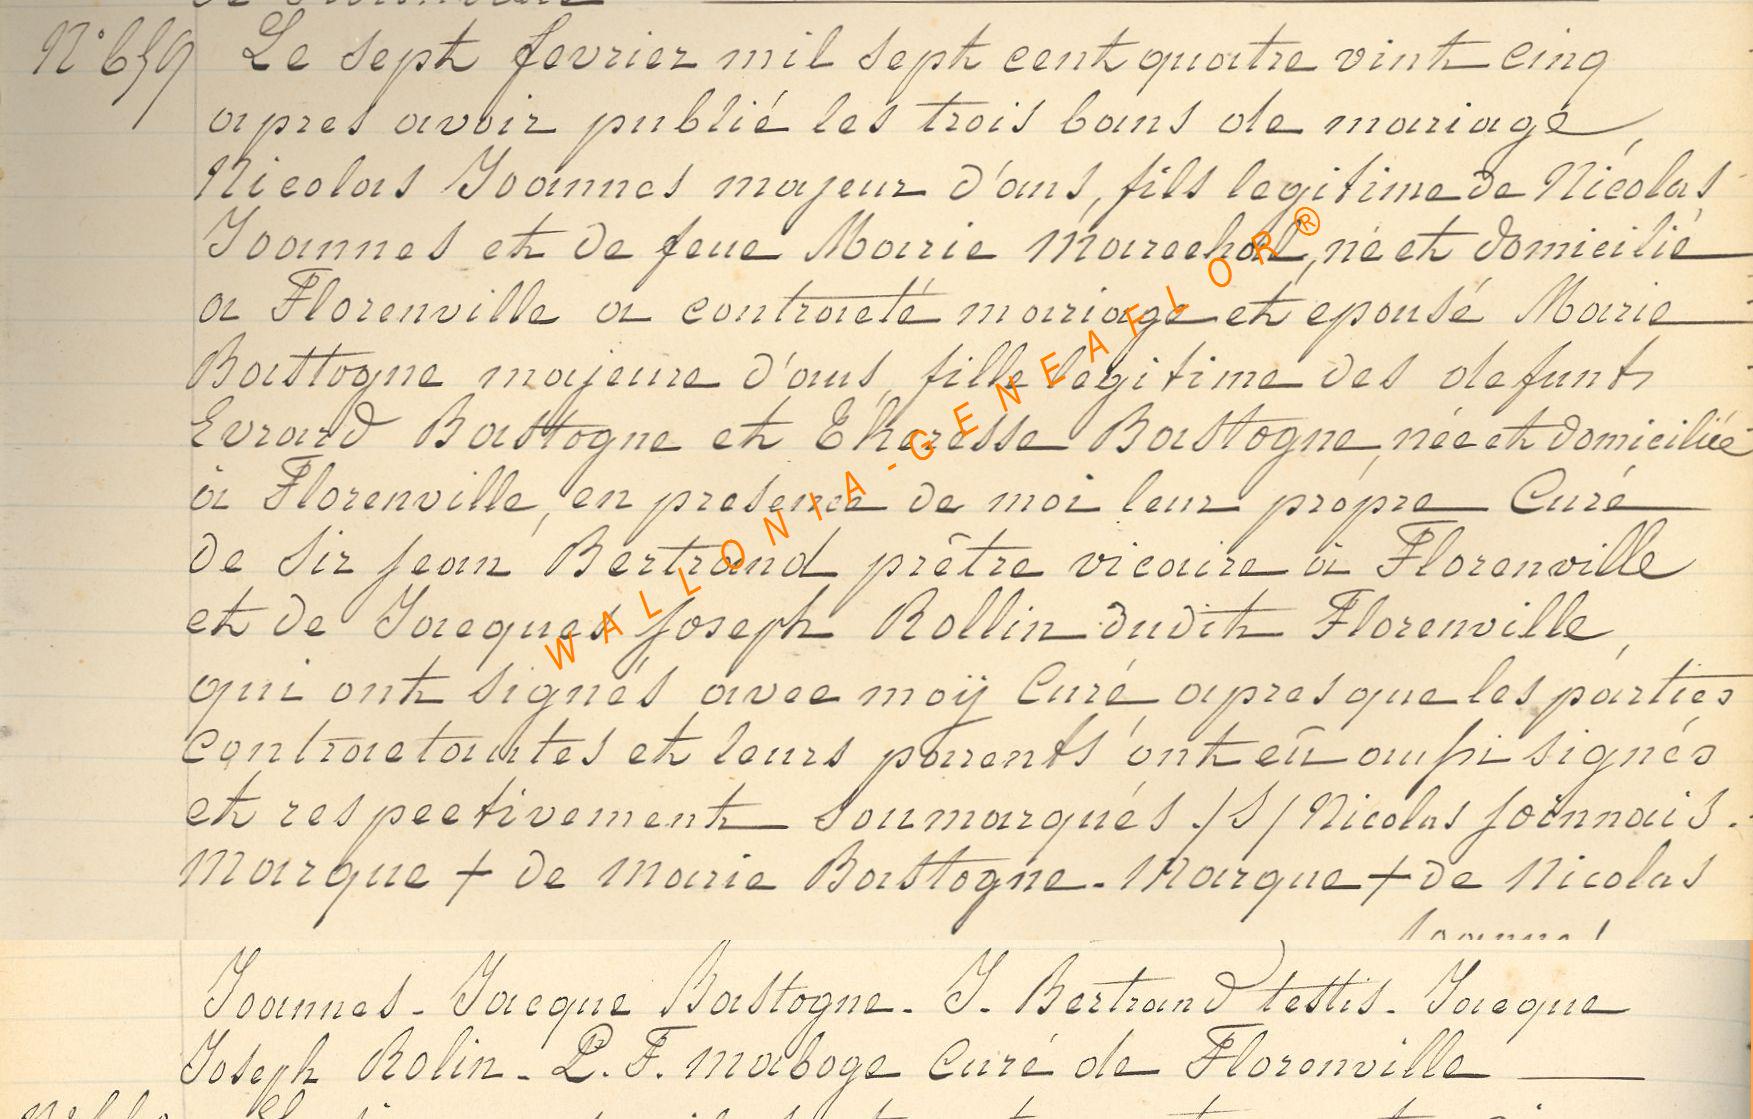 N° 659 Le sept fevrier mil sept cent quatre vint cinq
apres avoir publié les trois bans de mariage,
Nicolas Joannes majeur d'ans, fils legitime de Nicolas
Joannes et de feue Marie Marechal, né et domicilié
a Florenville a contracté mariage et epousé Marie
Bastogne majeure d'ans, fille legitime des defunts
Evrard Bastogne et Theresse Bastogne, née et domiciliée
à Florenville, en presence de moi leur propre Curé
de Sir Jean Bertrand prêtre vicaire à Florenville
et de Jacques Joseph Rollin dudit Florenville,
qui ont signés avec moÿ Curé apres que les parties
contractantes et leurs parents ont eû aussi signés
et respectivement soumarqués. /S/ Nicolas Joinnais.
Marque + de Marie Bastogne. Marque + de Nicolas
Joannes. Jacque Bastogne. J. Bertrand testis. Jacque
Joseph Rolin. P. F. Maboge Curé de Florenville
WALLONIA-GENEAFLOR®